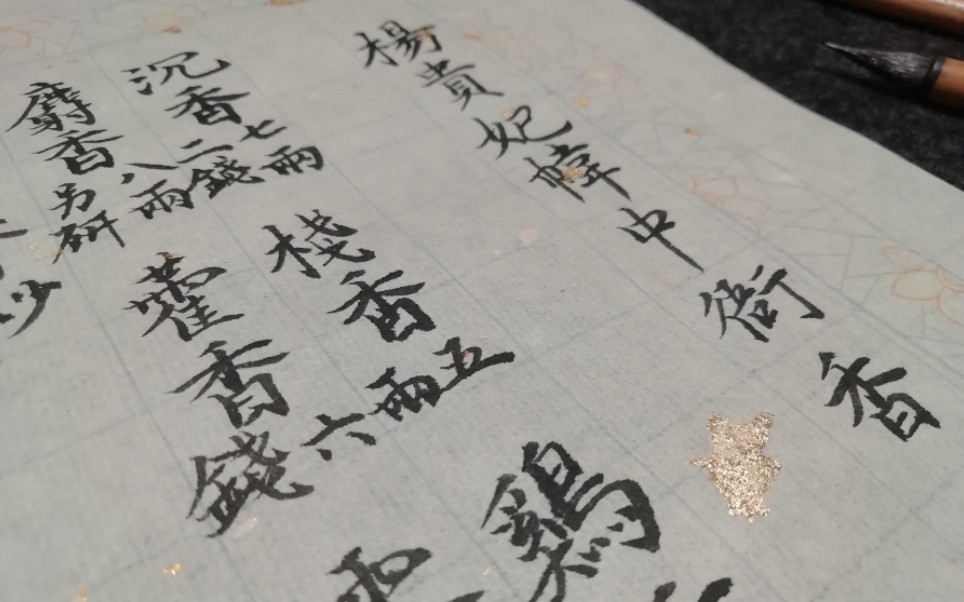 楊貴妃幃中衙香
沉香七兩二錢栈香五兩鷄
麝香八兩另研藿香六兩錢